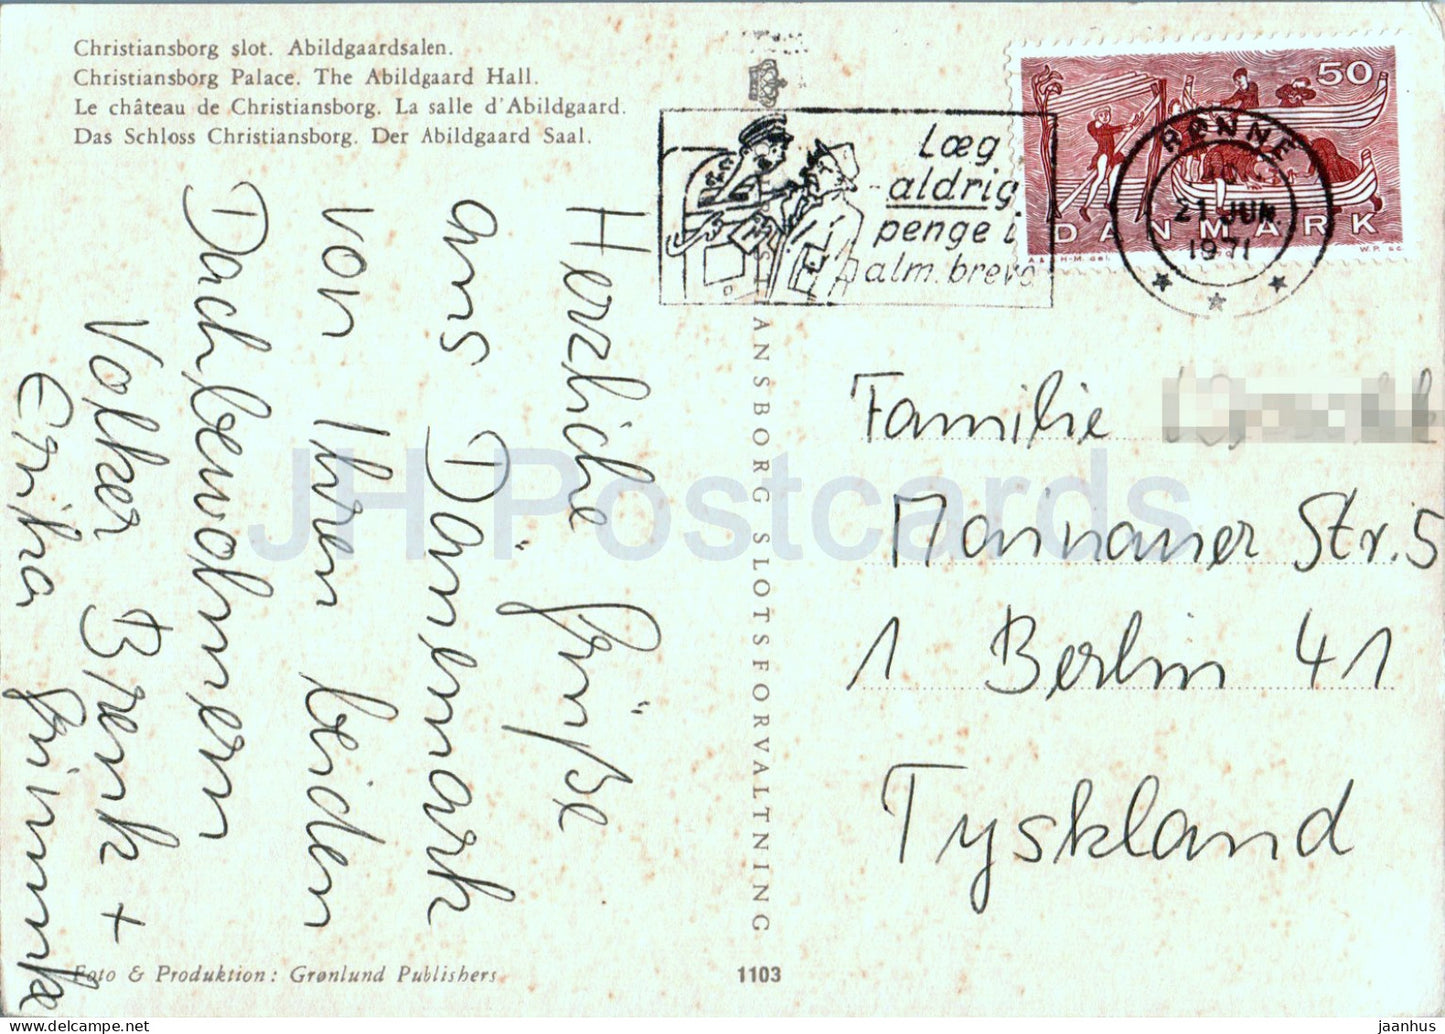 Christiansborg slot. Abildgaardsalen.
Christiansborg Palace. The Abildgaard Hall.
Le château de Christiansborg. La salle d'Abildgaard.
Das Schloss Christiansborg. Der Abildgaard Saal.
Herzliche Grüße
aus Dänemark
von Ihren beiden
Dachbewohnern
Volker Brenk +
Erika
Foto & Produktion: Grønlund Publishers
1103
ANSBORG SLOTSFORVALTNING
Læg
aldrig
penge i
alm. breve
50
DANMARK
W.P. sc.
RØNNE
21 JUN.
1971
Familie
Mainauer Str. 5
1 Berlin 41
Tyskland
JH Postcards
delcampe.net
jaanhus